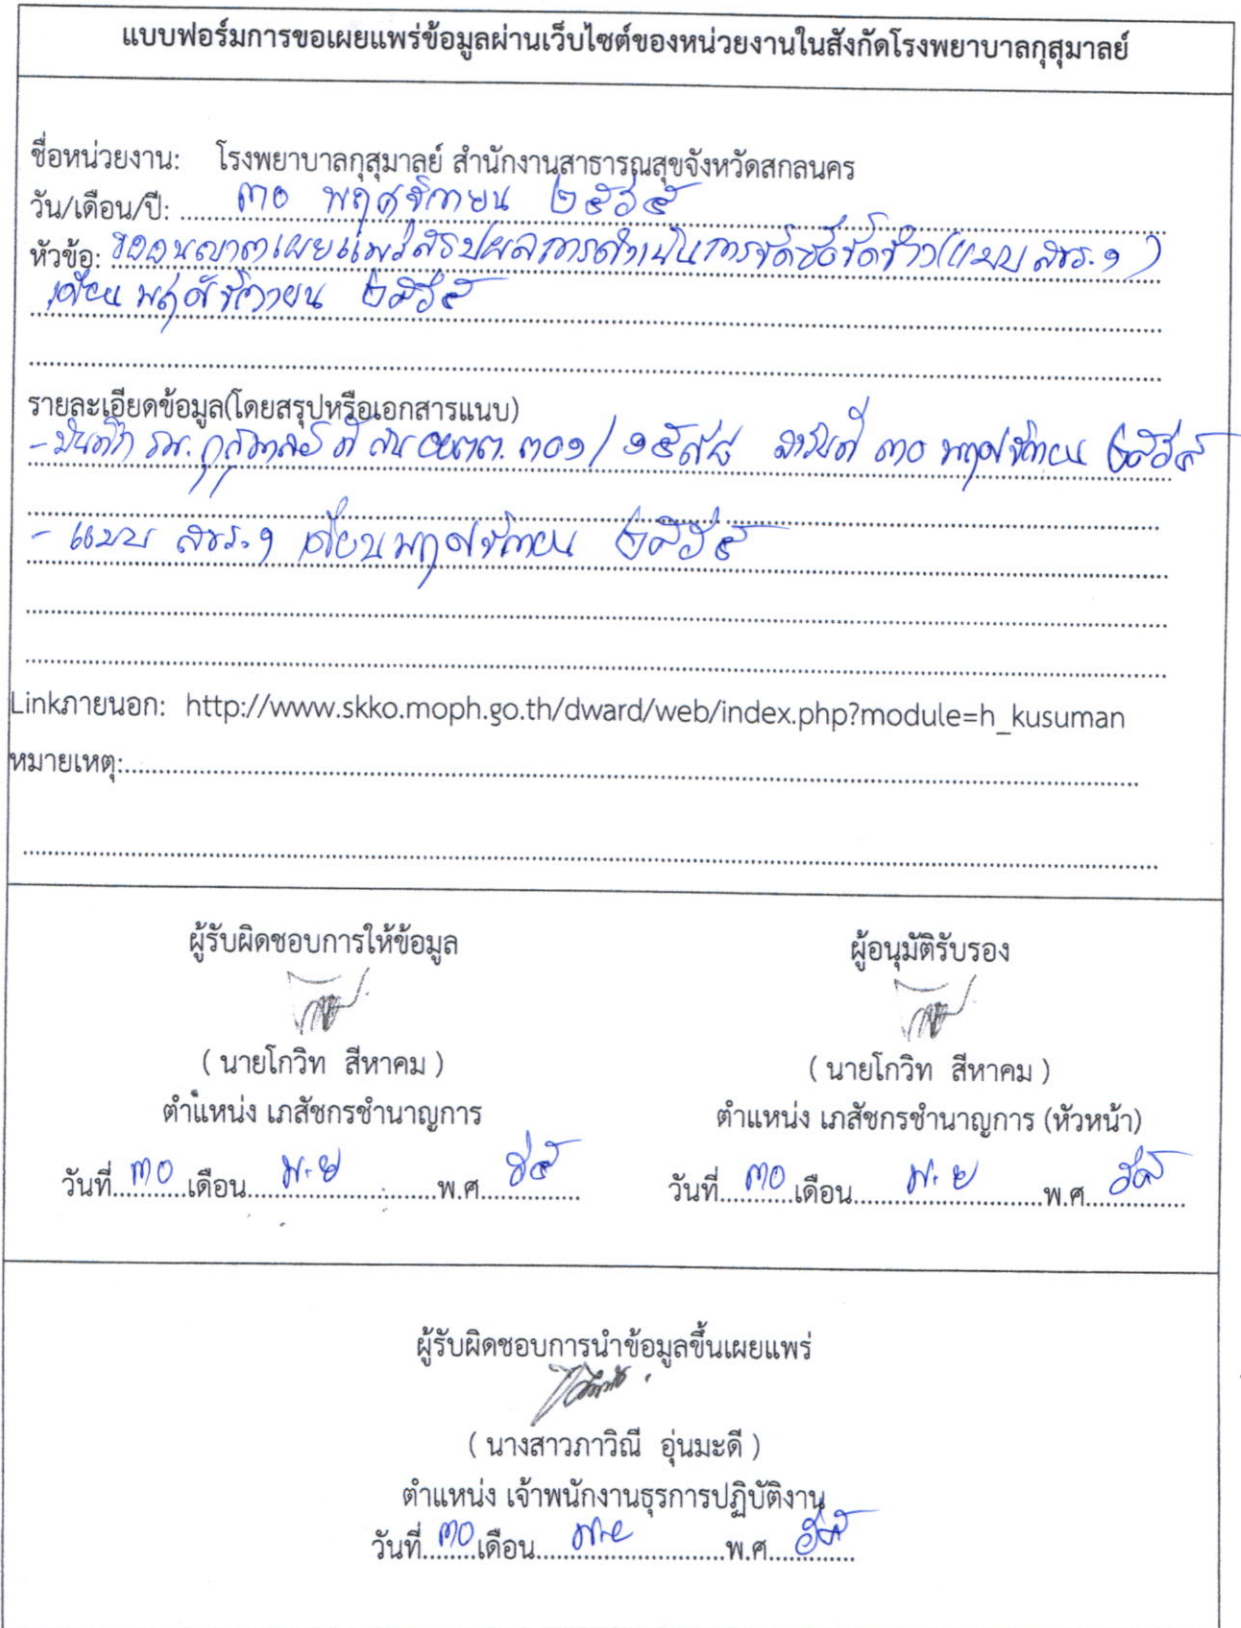 แบบฟอร์มการขอเผยแพร่ข้อมูลผ่านเว็บไซต์ของหน่วยงานในสังกัดโรงพยาบาลกุสุมาลย์
ชื่อหน่วยงาน: โรงพยาบาลกุสุมาลย์ สำนักงานสาธารณสุขจังหวัดสกลนคร
วัน/เดือน/ปี: ๓๐ พฤศจิกายน ๒๕๖๕
หัวข้อ: ขออนุญาตเผยแพร่สรุปผลการดำเนินการจัดซื้อจัดจ้าง(แบบ สขร.๑)
เดือน พฤศจิกายน ๒๕๖๕
รายละเอียดข้อมูล(โดยสรุปหรือเอกสารแนบ)
- บันทึก รพ. กุสุมาลย์ ที่ สน ๓๐๑/ ลงวันที่ ๓๐ พฤศจิกายน ๒๕๖๕
- แบบ สขร.๑ เดือนพฤศจิกายน ๒๕๖๕
Linkภายนอก: http://www.skko.moph.go.th/dward/web/index.php?module=h_kusuman
หมายเหตุ:
ผู้รับผิดชอบการให้ข้อมูล
( นายโกวิท สีหาคม )
ตำแหน่ง เภสัชกรชำนาญการ
วันที่ ๓๐ เดือน พ.ย พ.ศ. ๖๕
ผู้อนุมัติรับรอง
( นายโกวิท สีหาคม )
ตำแหน่ง เภสัชกรชำนาญการ (หัวหน้า)
วันที่ ๓๐ เดือน พ.ย พ.ศ. ๖๕
ผู้รับผิดชอบการนำข้อมูลขึ้นเผยแพร่
( นางสาวภาวิณี อุ่นมะดี )
ตำแหน่ง เจ้าพนักงานธุรการปฏิบัติงาน
วันที่ ๓๐ เดือน พ.ย พ.ศ. ๖๕